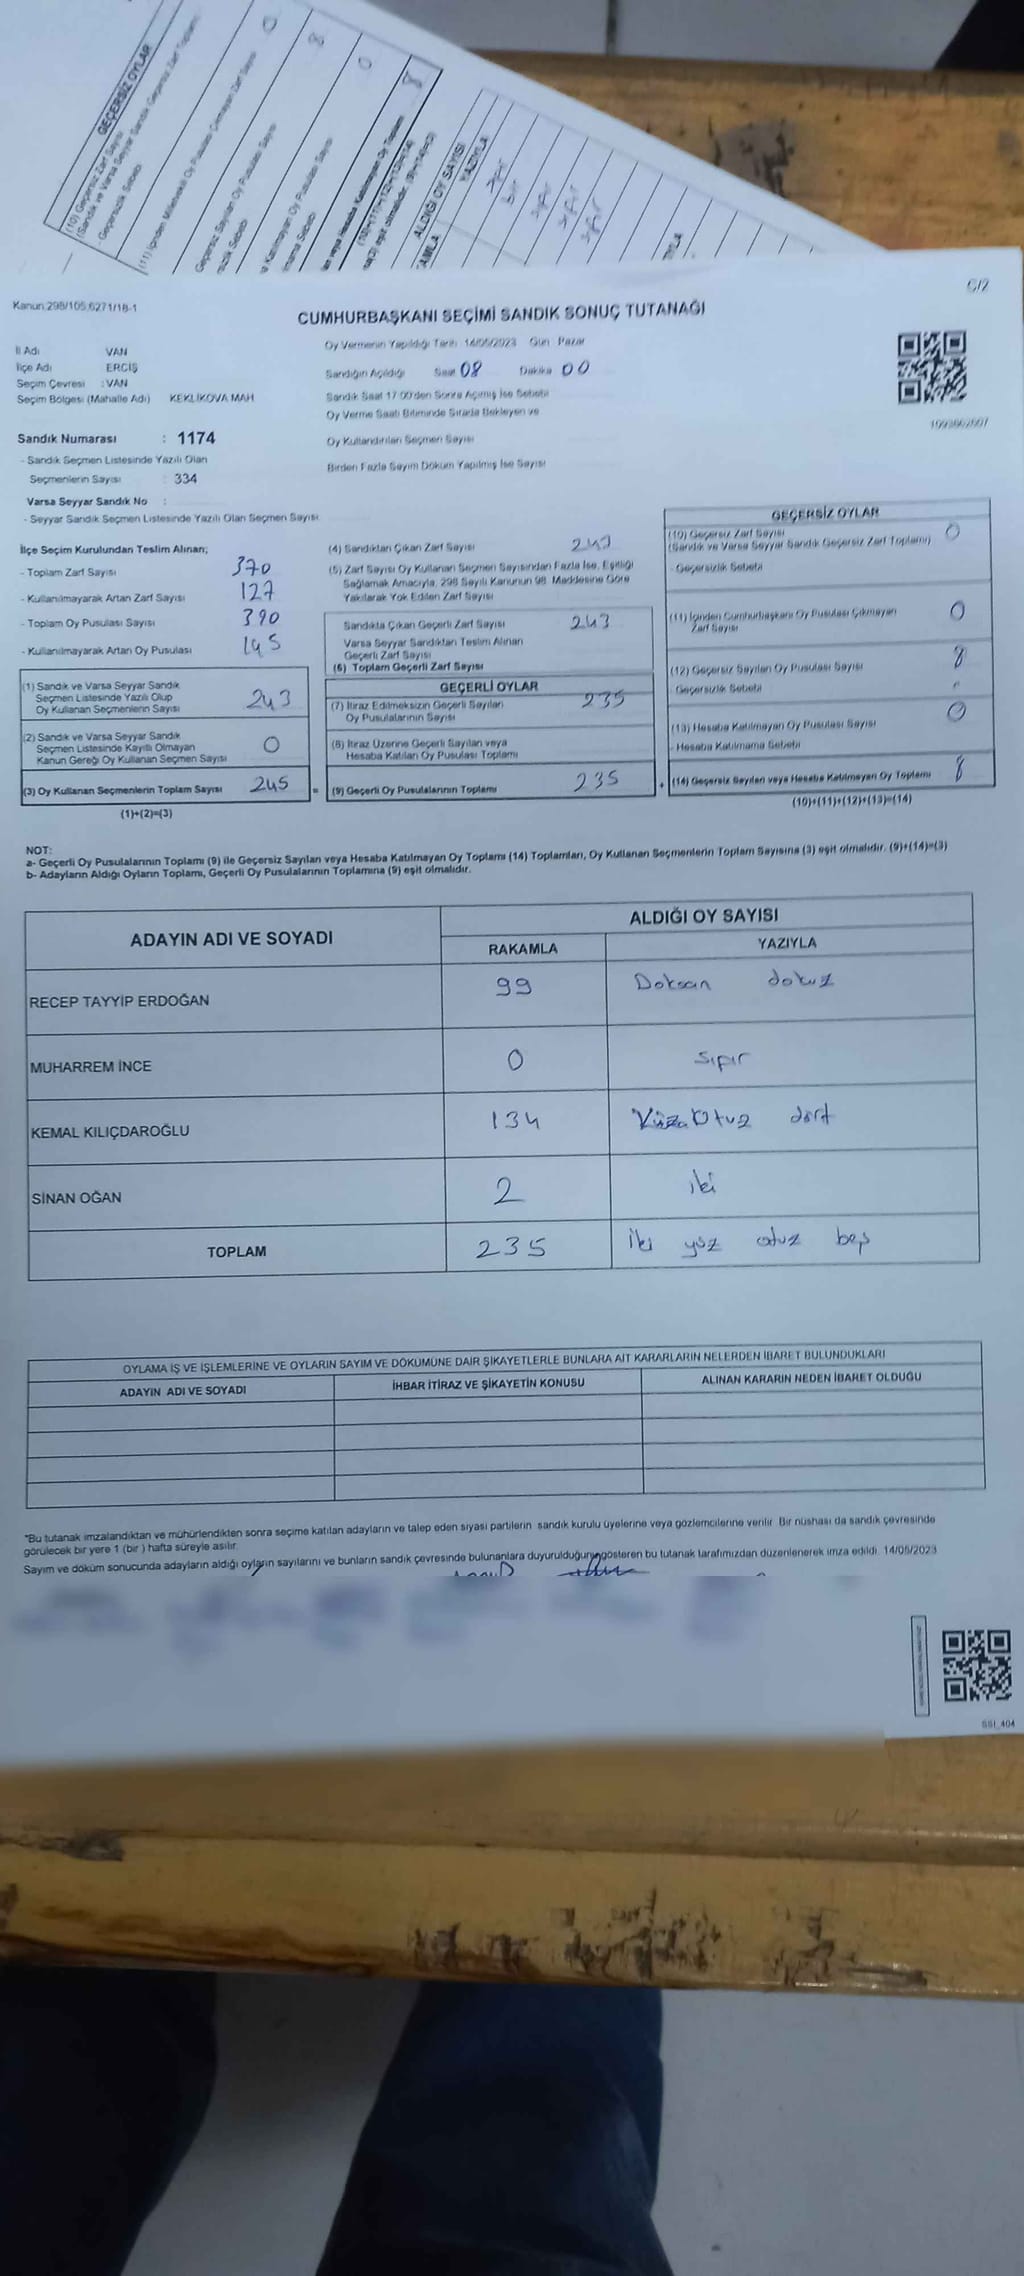 GEÇERSİZ OYLAR
(10) Geçersiz Zarf Sayısı
(Sandık ve Varsa Seyyar Sandık Geçersiz Zarf Toplamı)
0
Geçersizlik Sebebi
(11) İçinden Milletvekili Oy Pusulası Çıkmayan Zarf Sayısı
8
Geçersiz Sayılan Oy Pusulası Sayısı
0
8
ALDIĞI OY SAYISI
YAZIYLA
sıfır
bir
sıfır
sıfır
sıfır
C/2
Kanun:298/105;6271/18-1
CUMHURBAŞKANI SEÇİMİ SANDIK SONUÇ TUTANAĞI
İl Adı VAN
İlçe Adı ERCİŞ
Seçim Çevresi : VAN
Seçim Bölgesi (Mahalle Adı) KEKLİKOVA MAH
Oy Vermenin Yapıldığı Tarih 14/05/2023 Gün Pazar
Sandığın Açıldığı Saat 08 Dakika 00
Sandık Saat 17:00'den Sonra Açılmış İse Sebebi
Oy Verme Saati Bitiminde Sırada Bekleyen ve
Oy Kullandırılan Seçmen Sayısı
Birden Fazla Sayım Döküm Yapılmış İse Sayısı
1993602607
Sandık Numarası : 1174
- Sandık Seçmen Listesinde Yazılı Olan
Seçmenlerin Sayısı : 334
Varsa Seyyar Sandık No :
- Seyyar Sandık Seçmen Listesinde Yazılı Olan Seçmen Sayısı:
İlçe Seçim Kurulundan Teslim Alınan;
- Toplam Zarf Sayısı 370
- Kullanılmayarak Artan Zarf Sayısı 127
- Toplam Oy Pusulası Sayısı 390
- Kullanılmayarak Artan Oy Pusulası 145
(1) Sandık ve Varsa Seyyar Sandık
Seçmen Listesinde Yazılı Olup
Oy Kullanan Seçmenlerin Sayısı 243
(2) Sandık ve Varsa Seyyar Sandık
Seçmen Listesinde Kayıtlı Olmayan
Kanun Gereği Oy Kullanan Seçmen Sayısı 0
(3) Oy Kullanan Seçmenlerin Toplam Sayısı 245
(1)+(2)=(3)
=
(4) Sandıktan Çıkan Zarf Sayısı 243
(5) Zarf Sayısı Oy Kullanan Seçmen Sayısından Fazla İse, Eşitliği
Sağlamak Amacıyla, 298 Sayılı Kanunun 98. Maddesine Göre
Yakılarak Yok Edilen Zarf Sayısı
Sandıkta Çıkan Geçerli Zarf Sayısı 243
Varsa Seyyar Sandıktan Teslim Alınan
Geçerli Zarf Sayısı
(6) Toplam Geçerli Zarf Sayısı
GEÇERLİ OYLAR
(7) İtiraz Edilmeksizin Geçerli Sayılan
Oy Pusulalarının Sayısı 235
(8) İtiraz Üzerine Geçerli Sayılan veya
Hesaba Katılan Oy Pusulası Toplamı
(9) Geçerli Oy Pusulalarının Toplamı 235
+
GEÇERSİZ OYLAR
(10) Geçersiz Zarf Sayısı 0
(Sandık ve Varsa Seyyar Sandık Geçersiz Zarf Toplamı)
- Geçersizlik Sebebi
(11) İçinden Cumhurbaşkanı Oy Pusulası Çıkmayan
Zarf Sayısı 0
(12) Geçersiz Sayılan Oy Pusulası Sayısı 8
- Geçersizlik Sebebi
(13) Hesaba Katılmayan Oy Pusulası Sayısı 0
- Hesaba Katılmama Sebebi
(14) Geçersiz Sayılan veya Hesaba Katılmayan Oy Toplamı 8
(10)+(11)+(12)+(13)=(14)
NOT:
a- Geçerli Oy Pusulalarının Toplamı (9) ile Geçersiz Sayılan veya Hesaba Katılmayan Oy Toplamı (14) Toplamları, Oy Kullanan Seçmenlerin Toplam Sayısına (3) eşit olmalıdır. (9)+(14)=(3)
b- Adayların Aldığı Oyların Toplamı, Geçerli Oy Pusulalarının Toplamına (9) eşit olmalıdır.
ADAYIN ADI VE SOYADI
ALDIĞI OY SAYISI
RAKAMLA YAZIYLA
RECEP TAYYİP ERDOĞAN 99 Doksan dokuz
MUHARREM İNCE 0 sıfır
KEMAL KILIÇDAROĞLU 134 Yüz Otuz dört
SİNAN OĞAN 2 iki
TOPLAM 235 iki yüz otuz beş
OYLAMA İŞ VE İŞLEMLERİNE VE OYLARIN SAYIM VE DÖKÜMÜNE DAİR ŞİKAYETLERLE BUNLARA AİT KARARLARIN NELERDEN İBARET BULUNDUKLARI
ADAYIN ADI VE SOYADI İHBAR İTİRAZ VE ŞİKAYETİN KONUSU ALINAN KARARIN NEDEN İBARET OLDUĞU
"Bu tutanak imzalandıktan ve mühürlendikten sonra seçime katılan adayların ve talep eden siyasi partilerin sandık kurulu üyelerine veya gözlemcilerine verilir. Bir nüshası da sandık çevresinde
görülecek bir yere 1 (bir) hafta süreyle asılır.
Sayım ve döküm sonucunda adayların aldığı oyların sayılarını ve bunların sandık çevresinde bulunanlara duyurulduğunu gösteren bu tutanak tarafımızdan düzenlenerek imza edildi. 14/05/2023
SSI_404